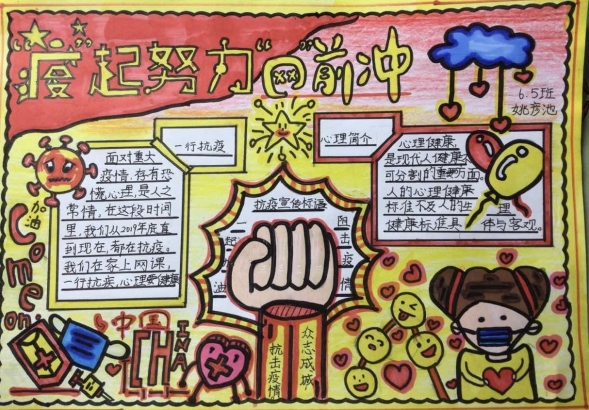 “疫”起努力“囧”前冲
6.5班
姚彦池
面对重大
疫情,存有恐
慌心理,是人之
常情,在这段时间
里,我们从2019年底直
到现在,都在抗疫。
我们在家上网课,
一行抗疾,心理要健康
一行抗疫
心理简介
心理健康,
是现代人健康不
可分割的重要方面。
人的心理健康
标准不及人的生理
健康标准具体与客观。
抗疫宣传标语
一起
加油
阻击疫情
加油
Come on
中国
CHINA
抗击疫情
众志成城